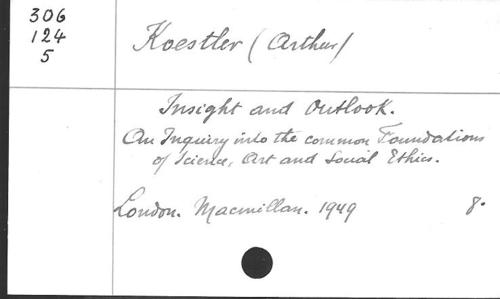 306
124
5
Koestler (Arthur)
Insight and Outlook.
An Inquiry into the common Foundations
of Science, Art and Social Ethics.
London. Macmillan. 1949 8.